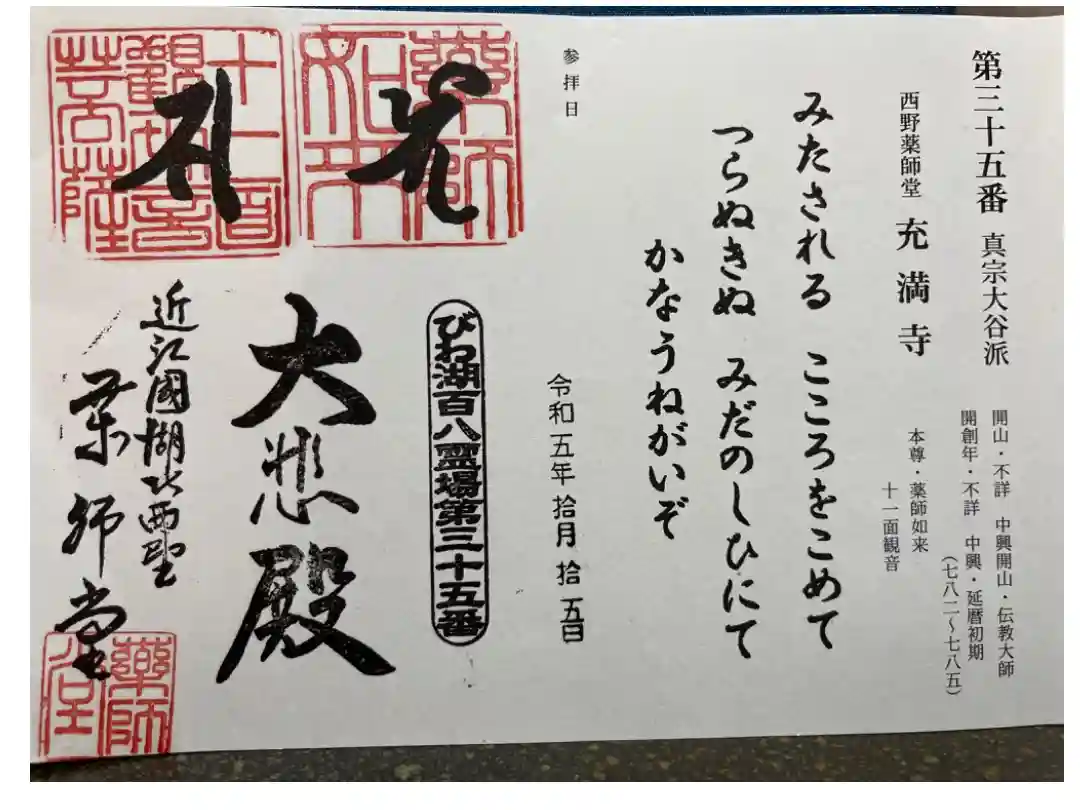 第三十五番 真宗大谷派
開山・不詳 中興開山・伝教大師
開創年・不詳 中興・延暦初期
(七八二〜七八五)
西野薬師堂 充満寺
本尊・薬師如来
十一面観音
みたされる こころをこめて
つらぬきぬ みだのしひにて
かなうねがいぞ
参拝日
令和五年 拾月 拾五日
びわ湖百八霊場第三十五番
薬師如来
大悲殿
十一面観世音菩薩
近江國湖北西野
薬師堂
薬師堂